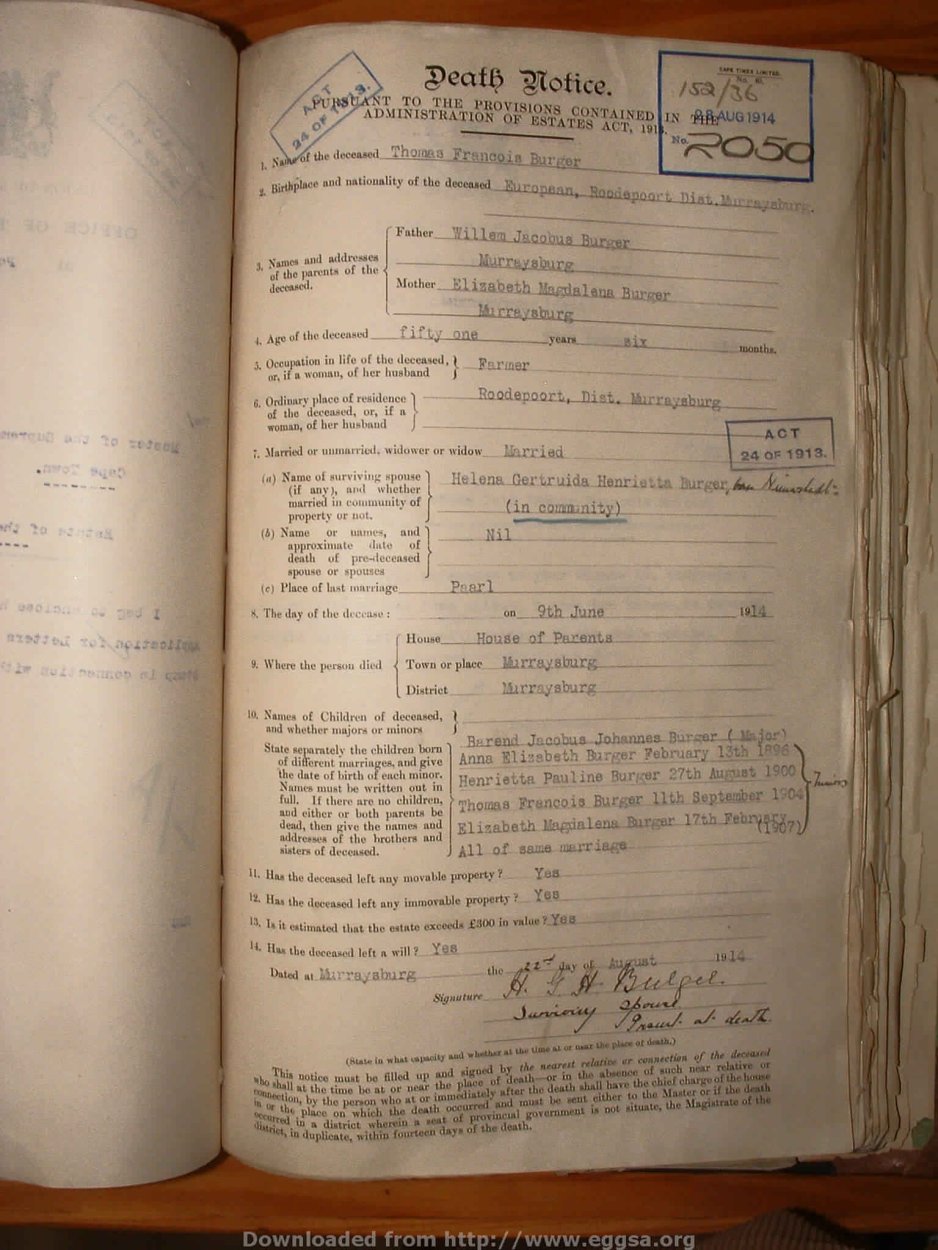 Death Notice.
PURSUANT TO THE PROVISIONS CONTAINED IN THE
ADMINISTRATION OF ESTATES ACT, 1913.
ACT
24 OF 1913.
CAPE TIMES LIMITED.
152/36
28 AUG 1914
No. 2050
1. Name of the deceased Thomas Francois Burger
2. Birthplace and nationality of the deceased European, Roodepoort Dist. Murraysburg.
3. Names and addresses of the parents of the deceased.
Father Willem Jacobus Burger
Murraysburg
Mother Elizabeth Magdalena Burger
Murraysburg
4. Age of the deceased fifty one years six months.
5. Occupation in life of the deceased,
or, if a woman, of her husband
Farmer
6. Ordinary place of residence
of the deceased, or, if a
woman, of her husband
Roodepoort, Dist. Murraysburg
ACT
24 OF 1913.
7. Married or unmarried, widower or widow Married
(a) Name of surviving spouse
(if any), and whether
married in community of
property or not.
Helena Gertruida Henrietta Burger,
(in community)
(b) Name or names, and
approximate date of
death of pre-deceased
spouse or spouses
Nil
(c) Place of last marriage Paarl
8. The day of the decease: on 9th June 1914
9. Where the person died
House House of Parents
Town or place Murraysburg
District Murraysburg
10. Names of Children of deceased,
and whether majors or minors
State separately the children born
of different marriages, and give
the date of birth of each minor.
Names must be written out in
full. If there are no children,
and either or both parents be
dead, then give the names and
addresses of the brothers and
sisters of deceased.
Barend Jacobus Johannes Burger ( Major)
Anna Elizabeth Burger February 13th 1896
Henrietta Pauline Burger 27th August 1900
Thomas Francois Burger 11th September 1904
Elizabeth Magdalena Burger 17th February
(1907)
All of same marriage
11. Has the deceased left any movable property? Yes
12. Has the deceased left any immovable property? Yes
13. Is it estimated that the estate exceeds £300 in value? Yes
14. Has the deceased left a will? Yes
Dated at Murraysburg the 22nd day of August 1914
Signature H. G. H. Burger.
Surviving spouse
Present at death
(State in what capacity and whether at the time at or near the place of death.)
This notice must be filled up and signed by the nearest relative or connection of the deceased
who shall at the time be at or near the place of death—or in the absence of such near relative or
connection, by the person who at or immediately after the death shall have the chief charge of the house
in or the place on which the death occurred and must be sent either to the Master or if the death
occurred in a district wherein a seat of provincial government is not situate, the Magistrate of the
district, in duplicate, within fourteen days of the death.
Downloaded from http://www.eggsa.org